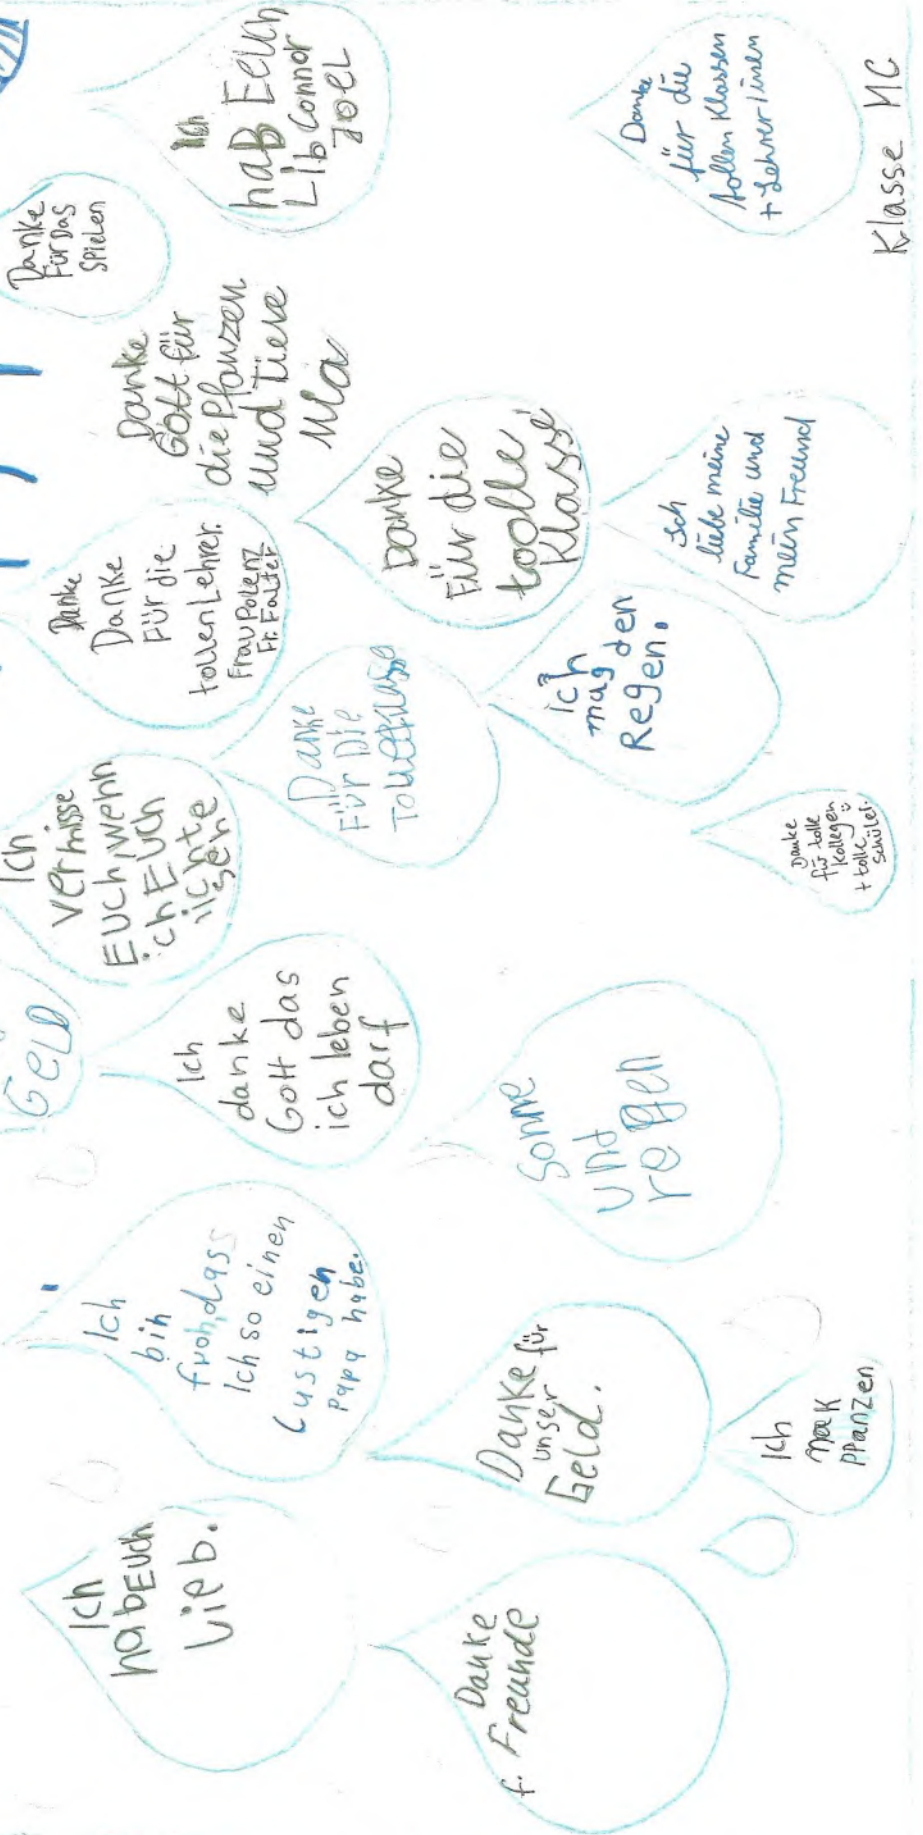 Ich
hab Euch
Lieb.
Danke
f. Freunde
Ich
bin
froh, dass
Ich so einen
Lustigen
Papa habe.
Danke für
unser
Geld.
Ich
mak
Pflanzen
GeLD
Ich
danke
Gott das
ich leben
darf
Sonne
und
regen
Ich
vermisse
EUCH, wenn
ich Euch
Danke
Für Die
Danke
für tolle
Kollegen
+ tolle
Schüler.
Danke
Danke
Für die
tollen Lehrer.
Frau Pollenz
Fr. Falter
Ich
mag den
Regen.
Danke
Für die
toolle
Klasse
Ich
liebe meine
Familie und
mein Freund
Danke
Gott für
die Pfanzen
und tiere
Mia
Danke
Für Das
SPieLen
Ich
haB EeUch
Lib Connor
JOEL
Danke
für die
tollen Klassen
+ Lehrer/innen
Klasse MC